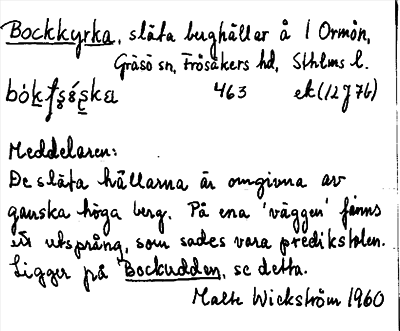 Bockkyrka, släta berghällar å l Ormön,
Gräsö sn, Frösåkers hd, Sthlms l.
463 ek (12J7b)
Meddelaren:
De släta hällarna är omgivna av
ganska höga berg. På ena 'väggen' finns
ett utsprång, som sades vara predikstolen.
Ligger på Bockudden, se detta.
Malte Wickström 1960